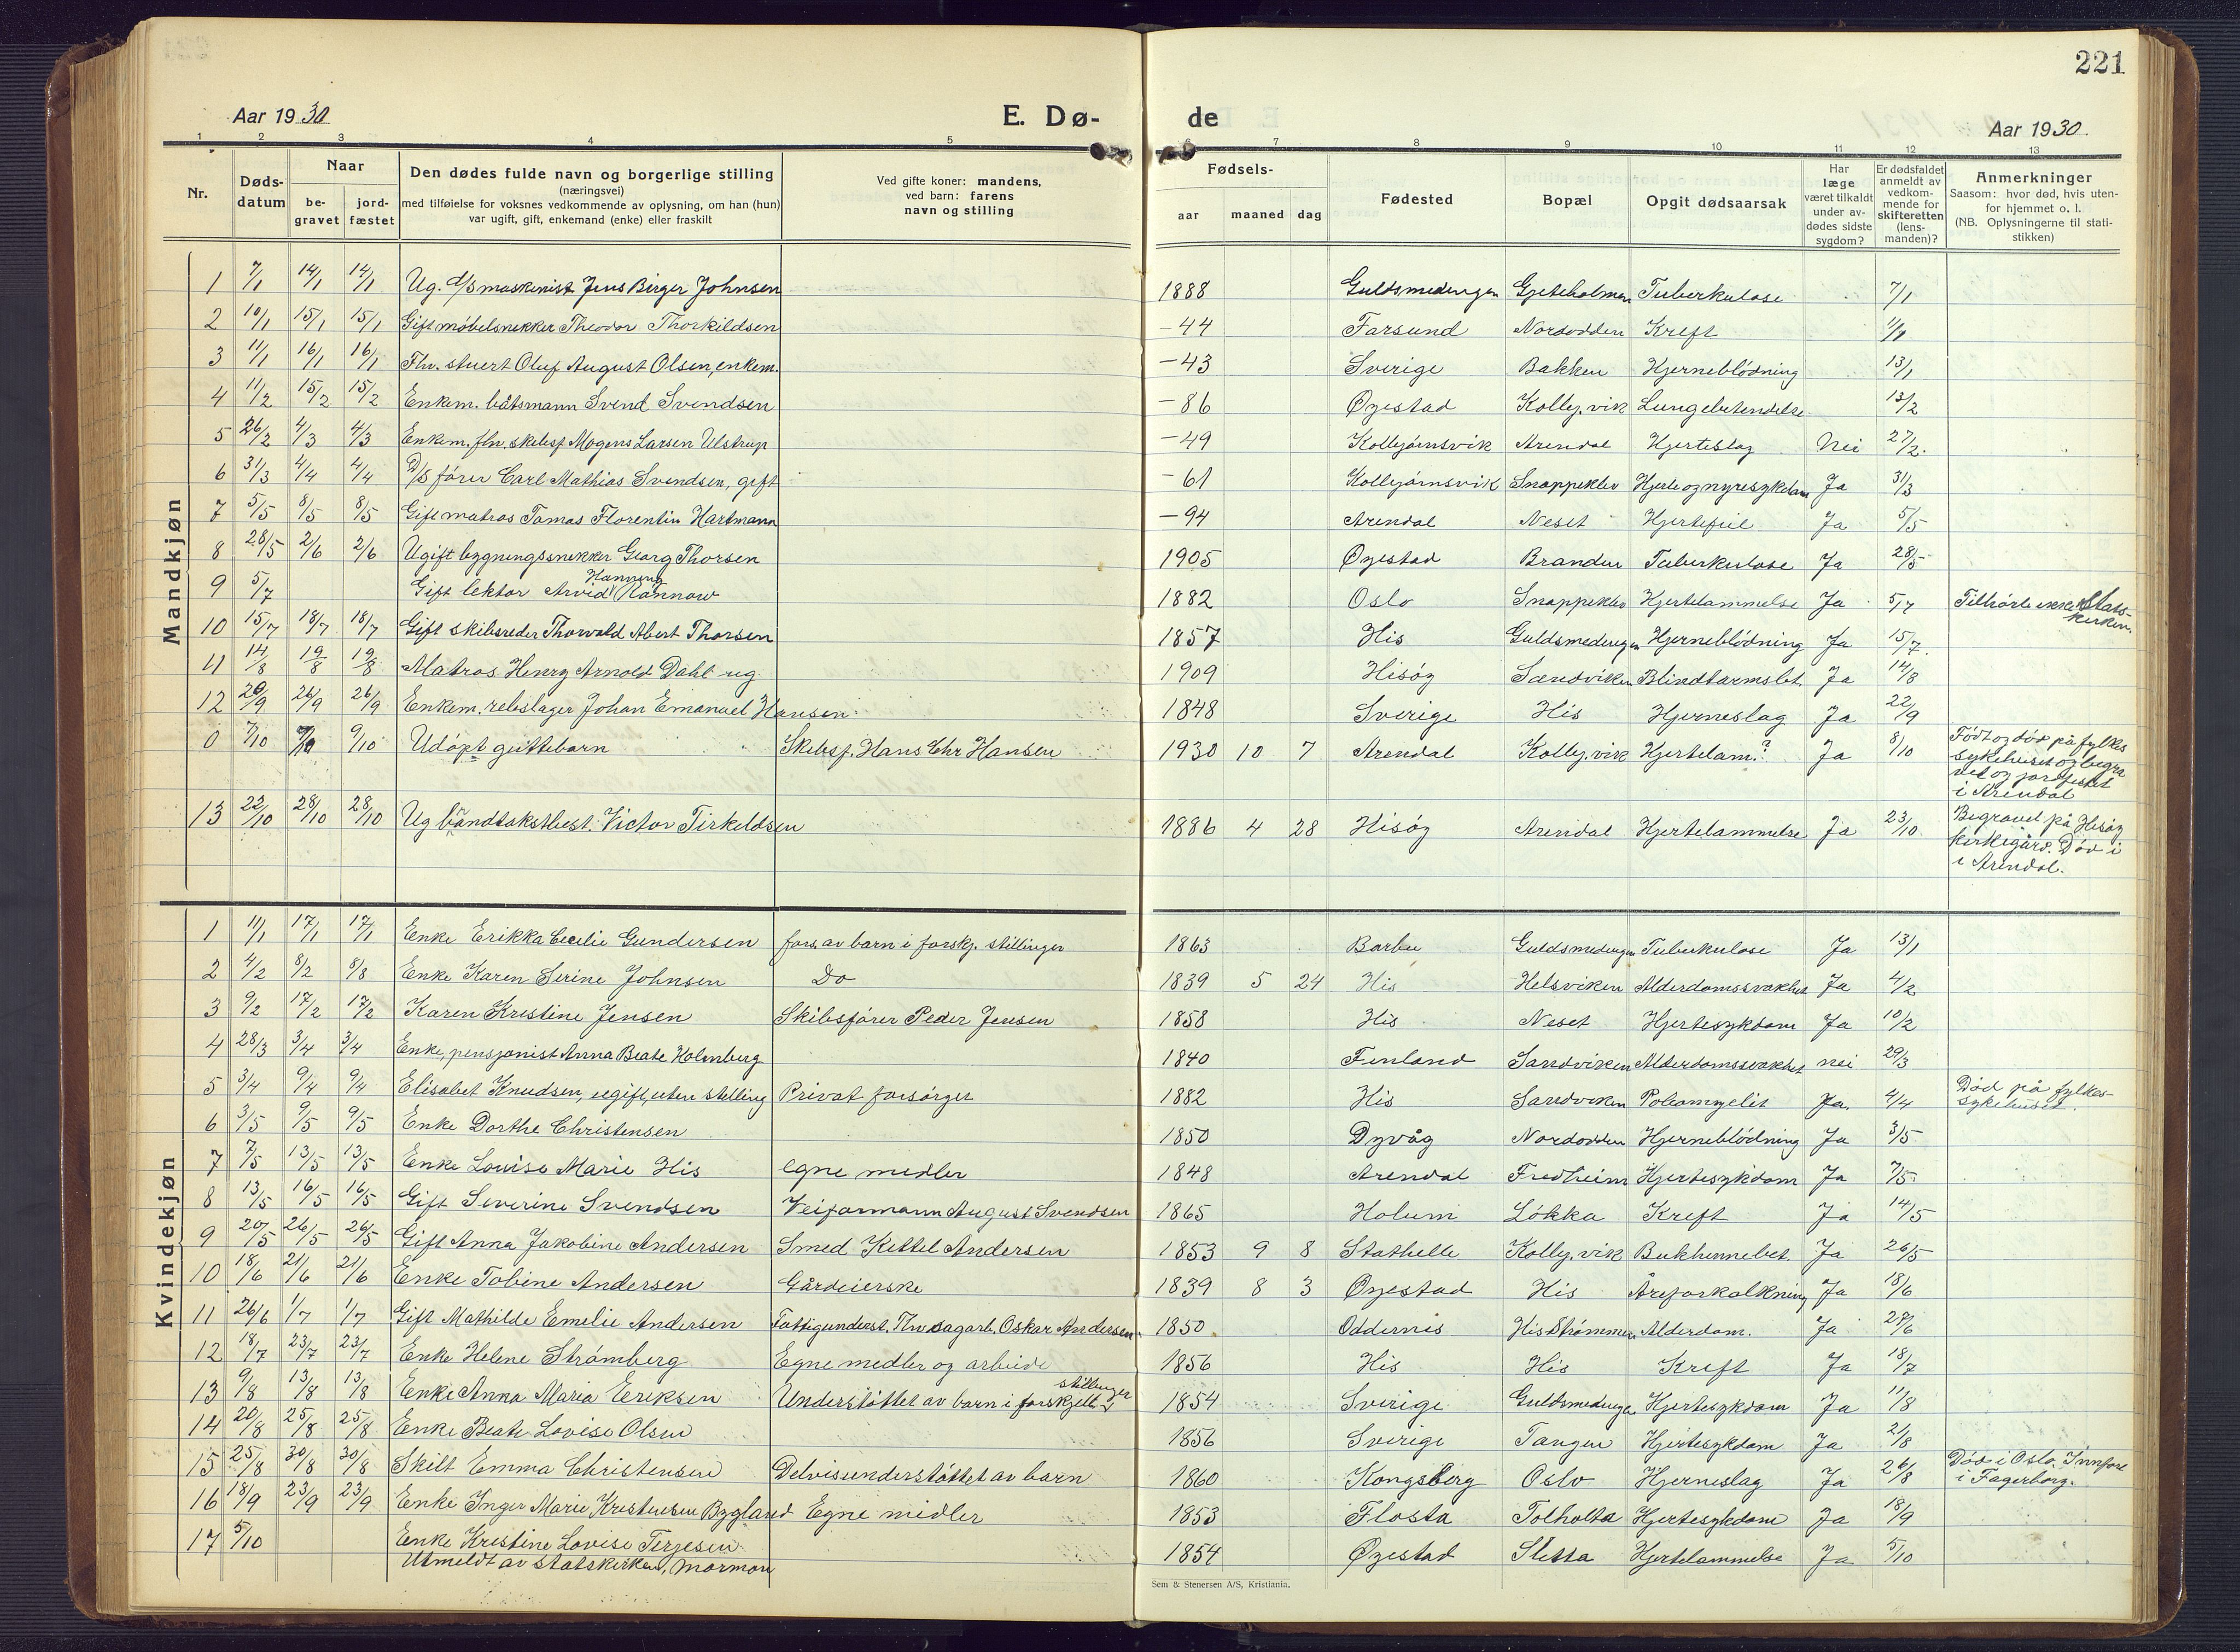 221
Aar 1930 E. Dø- de Aar 1930.
1 2 3 4 5 6 7 8 9 10 11 12 13
Nr. Dødsdatum Naar begravet jordfæstet
Den dødes fulde navn og borgerlige stilling
(næringsvei)
med tilføielse for voksnes vedkommende av oplysning, om han (hun)
var ugift, gift, enkemand (enke) eller fraskilt
Ved gifte koner: mandens,
ved barn: farens
navn og stilling
Fødsels- aar maaned dag
Fødested Bopæl Opgit dødsaarsak
Har læge været tilkaldt under avdødes sidste sygdom?
Er dødsfaldet anmeldt av vedkommende for skifteretten (lensmanden)?
Anmerkninger
Saasom: hvor død, hvis utenfor hjemmet o. l.
(NB. Oplysningerne til statistikken)
Mandkjøn
1 7/1 14/1 14/1 Ug. d/s maskinist Jens Birger Johnsen 1888 Guldsmedengen Gjeteholmen Tuberkulose 7/1
2 10/1 15/1 15/1 Gift møbelsnekker Theodor Thorkildsen -44 Farsund Nordodden Kreft 11/1
3 11/1 16/1 16/1 Fhv. stuert Oluf August Olsen, enkem. -43 Sverige Bakken Hjerneblødning 13/1
4 11/2 15/2 15/2 Enkem. båtsmann Svend Svendsen -86 Øyestad Kollbj.vik Lungebetendelse 13/2
5 26/2 4/3 4/3 Enkem. fhv. skibsf. Mogens Larsen Ulstrup -49 Kolbjørnsvik Arendal Hjerteslag Nei 27/2.
6 31/3 4/4 4/4 D/S fører Carl Mathias Svendsen, gift -61 Kolbjørnsvik Snøppeklev Hjerte og nyresykdom Ja 31/3
7 5/5 8/5 8/5 Gift matros Tomas Florentin Hartmann -94 Arendal Neset Hjertefeil Ja 5/5
8 28/5 2/6 2/6 Ugift bygningssnekker Georg Thorsen 1905 Øyestad Branden Tuberkulose Ja 28/5
9 5/7 Gift lektor Arvid Hannow 1882 Oslo Snøppeklev Hjertelammelse Ja 5/7 Tilhørte ikke Stats-
kirken.
10 15/7 18/7 18/7 Gift skibsreder Thorvald Abert Thorsen 1857 His Guldsmedengen Hjerneblødning Ja 15/7.
11 14/8 19/8 19/8 Matros Henry Arnold Dahl ug. 1909 Hisøy Sandviken Blindtarmsbet. Ja 14/8
12 20/9 26/9 26/9 Enkem. rebslager Johan Emanuel Hansen 1848 Sverige His Hjerneslag Ja 22/9
0 7/10 9/10 9/10 Udøpt guttebarn Skibsf. Hans Chr Hansen 1930 10 7 Arendal Kolbj.vik Hjertelam.? Ja 8/10 Født og død på fylkes
sykehuset og begra
vet og jordfestet
i Arendal
13 22/10 28/10 28/10 Ug. Victor Tirkildsen 1886 4 28 Hisøy Arendal Hjertelammelse Ja 23/10 Begravet på Hisøy
kirkegård. Død i
i Arendal.
Kvindekjøn
1 11/1 17/1 17/1 Enke Erikka Cecilie Gundersen fors. av barn i forskj. stillinger 1863 Barbu Guldsmedengen Tuberkulose Ja 13/1
2 4/2 8/2 8/8 Enke Karen Serine Johnsen Do 1839 5 24 His Helsviken Alderdomssvakhet Ja 4/2
3 9/2 17/2 17/2 Karen Kristine Jensen Skibsfører Peder Jensen 1858 His Neset Hjertesykdom Ja 10/2
4 28/3 3/4 3/4 Enke, pensjonist Anna Beate Holmberg 1840 Finland Sandviken Alderdomssvakhet nei 29/3
5 3/4 9/4 9/4 Elisabet Knudsen, ugift, uten stilling Privat forsørger 1882 His Sandviken Poliomyelit Ja. 4/4 Død på fylkes-
sykehuset.
6 3/5 9/5 9/5 Enke Dorthe Christensen 1850 Dyvåg Nordodden Hjerneblødning Ja 3/5
7 7/5 13/5 13/5 Enke Lovise Marie His egne midler 1848 Arendal Fredheim Hjertesykdom Ja 7/5
8 13/5 16/5 16/5 Gift Severine Svendsen Veiformann August Svendsen 1865 Holum Løkka Kreft Ja 14/5
9 20/5 26/5 26/5 Gift Anna Jakobine Andersen Smed Kittel Andersen 1853 9 8 Stathelle Kolbj.vik Bukhinnebet. Ja 26/5
10 18/6 21/6 21/6 Enke Tobine Andersen Gårdeierske 1839 8 3 Øyestad His Åreforkalkning Ja 18/6
11 26/6 1/7 1/7 Gift Mathilde Emelie Andersen Fattigunderst. Fhv. sagarb. Oskar Andersen. 1850 Oddernes His Strømmen Alderdom. Ja 27/6
12 18/7 23/7 23/7 Enke Helene Strømberg Egne midler og arbeide 1856 His His Kreft Ja 18/7
13 9/8 13/8 13/8 Enke Anna Maria Eriksen Understøttet av barn i forskjell. stillinger 1854 Sverige Guldsmedengen Hjertesykdom Ja 11/8
14 20/8 25/8 25/8 Enke Beate Lovise Olsen 1856 Sverige Tangen Hjertesykdom Ja 21/8
15 25/8 30/8 30/8 Skilt Emma Christensen Delvis understøttet av barn 1860 Kongsberg Oslo Hjerneslag Ja 26/8 Død i Oslo. Innført
i Fagerborg.
16 18/9 23/9 23/9 Enke Inger Marie Kristensen Bygland Egne midler 1853 Flosta Tolholta Hjertesykdom Ja 18/9
17 5/10 Enke Kristine Lovise Terjesen 1854 Øyestad Sletta Hjertelammelse Ja 5/10
Utmeldt av statskirken, mormon
Sem & Stenersen A/S, Kristiania.